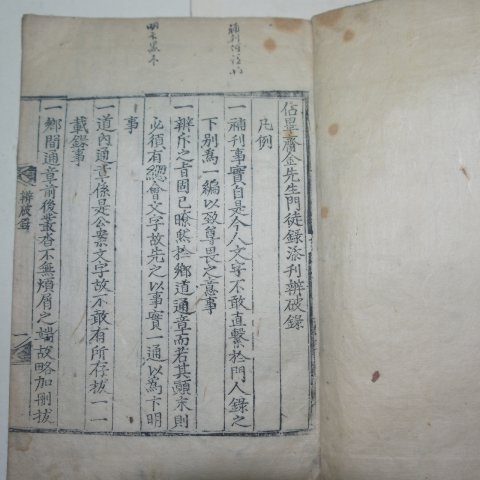 佔畢齋金先生門徒錄添刊辨破錄
凡例
一補刊事實自是今人文字不敢直繫於門人錄之
下別爲一編以致尊畏之意事
一辨斥之旨固已瞭然於鄕道通章而若其顚末則
必須有總會文字故先之以事實一通以爲卞明
事
一道內通章係是公案文字故不敢有所存拔一一
載錄事
一鄕間通章前後叢沓不無煩屑之端故略加刪拔
辨破錄
一